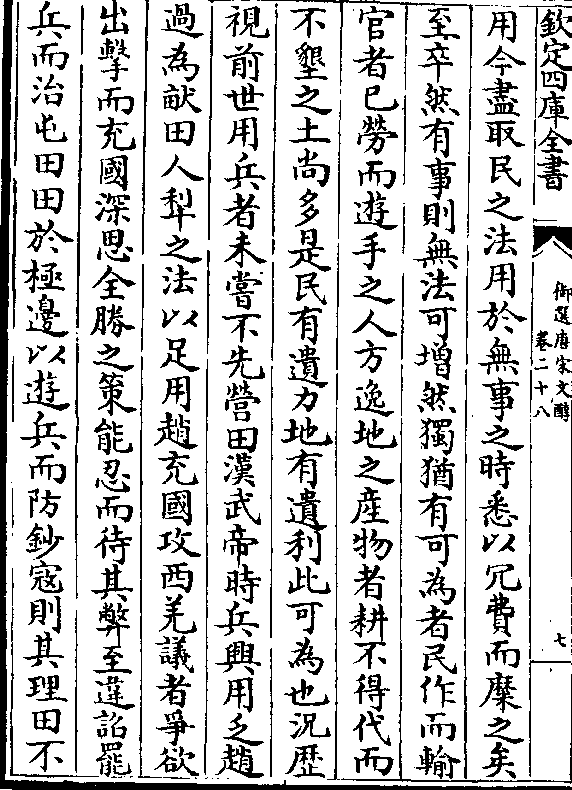 欽定四庫全書
御選唐宋文醇
卷二十八
七
用今盡取民之法用於無事之時悉以冗費而糜之矣
至卒然有事則無法可增然獨猶有可為者民作而輸
官者已勞而遊手之人方逸地之産物者耕不得代而
不墾之土尚多是民有遺力地有遺利此可為也況歴
視前世用兵者未嘗不先營田漢武帝時兵興用乏趙
過為畎田人犁之法以足用趙充國攻西羌議者爭欲
出擊而充國深思全勝之策能忍而待其弊至違詔罷
兵而治屯田田於極邊以遊兵而防鈔寇則其理田不